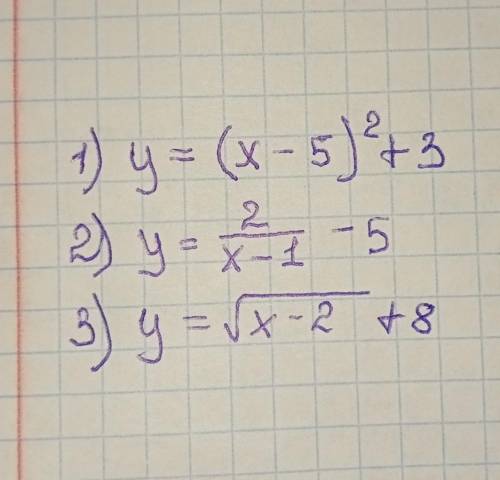 1) y = (x - 5)² + 3
2) y = 2/(x - 1) - 5
3) y = √(x - 2) + 8